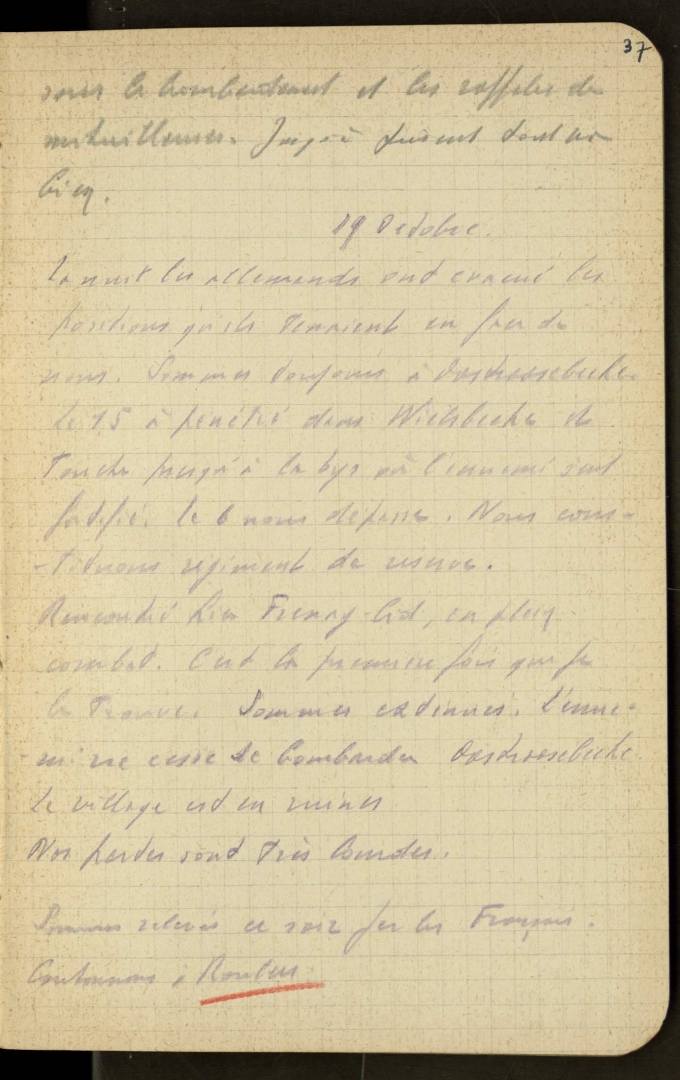 37
sous le bombardement et les raffales de
mitrailleuses. Jusqu'à présent tout va
bien.
19 Octobre.
La nuit les allemands ont evacué les
positions qu'ils tenaient en face de
nous. Sommes toujours à Oostroosebeke.
Le 15 a pénétré dans Wielsbeke et
touche jusqu'à la Lys où l'ennemi s'est
fortifié. Le 6 nous dépasse. Nous cons-
-tituons régiment de reserve.
Rencontré hier Fremy, en plein
combat. C'est la premiere fois que je
le trouve. Sommes extenués. L'enne-
mi ne cesse de bombarder Oostroosebeke.
Le village est en ruines
Nos pertes sont très lourdes.
Sommes relevés ce soir par les Français.
Cantonnons à Roulers